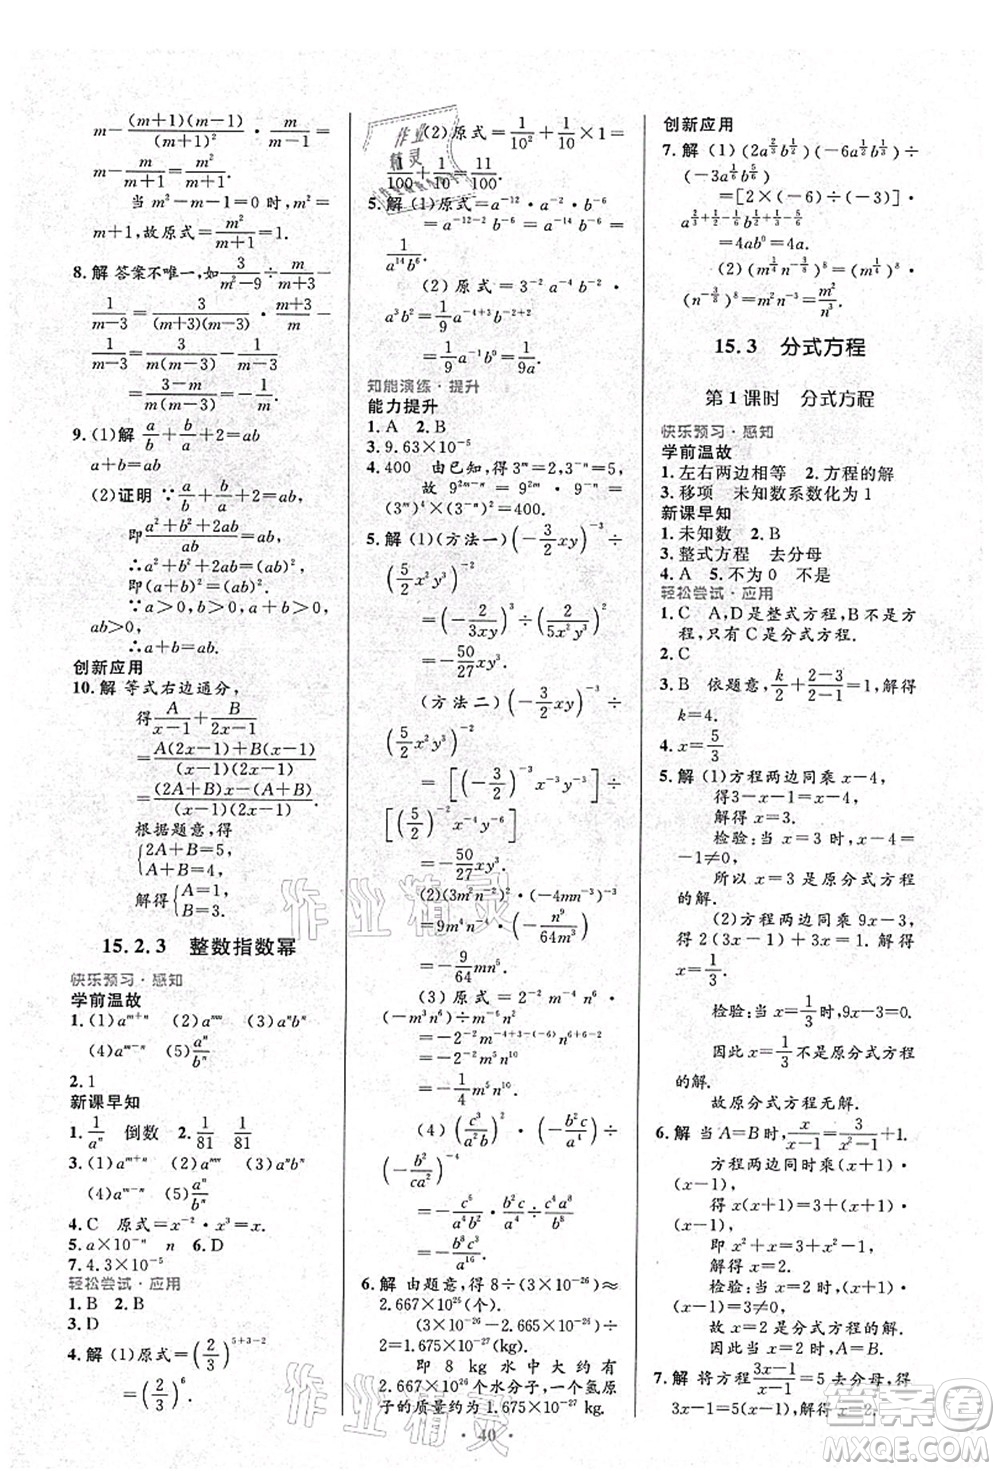 m−\frac{(m+1)(m−1)}{m^2}·\frac{m}{m+1}=
m−\frac{m−1}{m+1}
当 m²−m−1=0 时，m²=
m+1，故原式=\frac{m^2}{m+1}=1.
8. 解 答案不唯一，如\frac{3}{m²−9}÷\frac{m}{m+3}−
\frac{1}{m−3}=\frac{3}{(m+3)(m−3)}·\frac{m+3}{m}−
\frac{1}{m−3}=\frac{3−m}{m(m−3)}=−\frac{1}{m}.
9. (1)解 \frac{a}{b}+\frac{b}{a}+2=ab，
a+b=ab.
(2)证明 ∵\frac{a}{b}+\frac{b}{a}+2=ab，
即\frac{a²+b²+2ab}{ab}=ab，
∴a²+b²+2ab=(ab)²，
即(a+b)²=(ab)².
∵a>0，b>0，a+b>0，
ab>0，
∴a+b=ab.
创新应用
10. 解 等式右边通分，
得\frac{A}{x−1}+\frac{B}{2x−1}
=\frac{A(2x−1)+B(x−1)}{(x−1)(2x−1)}
=\frac{(2A+B)x−(A+B)}{(x−1)(2x−1)}
根据题意，得
{2A+B=5，
A+B=4，
解得{A=1，
B=3.
15.2.3 整数指数幂
快乐预习·感知
学前温故
1. (1)a^{m+n} (2)a^{mn} (3)a^n b^n
(4)a^{m−n} (5)\frac{a^n}{b^n}
2. 1
新课早知
1. \frac{1}{a^n} 倒数 2. \frac{1}{81} \frac{1}{81}
3. (1)a^{m+n} (2)a^{mn} (3)a^n b^n
(4)a^{m−n} (5)\frac{a^n}{b^n}
4. C 原式=x^{−2}·x³=x.
5. a×10^{−n} n 6. D
7. 4.3×10^{−5}
轻松尝试·应用
1. B 2. B
3. D
4. 解 (1)原式=(\frac{2}{3})^{5+3−2}
=(\frac{2}{3})^6.
(2)原式=\frac{1}{10²}+\frac{1}{10}×1=
\frac{1}{100}+\frac{1}{10}=\frac{11}{100}.
5. 解 (1)原式=a^{−12}·a^{−2}·b^{−6}
=a^{−12−2}b^{−6}=a^{−14}b^{−6}=
\frac{1}{a^{14}b^6}.
(2)原式=3^{−2}a^{−4}b^{−2}·
a³b²=\frac{1}{9}a^{−4+3}b^{−2+2}=
\frac{1}{9}a^{−1}b^0=\frac{1}{9a}.
知能演练·提升
能力提升
1. A 2. B
3. 9.63×10^{−5}
4. 400 由已知，得3^m=5，3^n=
故 9^{2m−n}=9^{2m}·9^{−n}=
(3^m)^4×(3^n)^{−2}=400.
5. 解 (1)(方法一)(−\frac{3}{2}xy)^{−3}÷
(\frac{5}{2}x²y)^{−2}
=(−\frac{2}{3xy})³÷(\frac{2}{5x²y})²
=−\frac{50}{27}xy^{−1}.
(方法二)(−\frac{3}{2}xy)^{−3}÷
(\frac{5}{2}x²y)^{−2}
=[(−\frac{3}{2})^{−3}x^{−3}y^{−3}]÷
[(\frac{5}{2})^{−2}x^{−4}y^{−2}]
=−\frac{50}{27}xy^{−1}.
(2)(3m²n^{−2})²·(−4mn^{−3})^{−3}
=9m⁴n^{−4}·(−\frac{n^9}{64m³})
=−\frac{9}{64}mn⁵.
(3)原式=2^{−2}m^{−4}n⁶·
(−m³n⁶)÷m^{−6}n²
=−2^{−2}m^{−4+3−(−6)}n^{6+6−2}
=−2^{−2}m⁵n^{10}
=−\frac{1}{4}m⁵n^{10}.
(4)(\frac{c³}{a²b})²÷(−\frac{b²c}{a⁴})÷
(−\frac{b²}{ca²})^{−4}
=−\frac{c^6}{a^4b²}·\frac{a^4}{b²c}·\frac{b^8}{c^4a^8}
6. 解 由题意，得8÷(3×10^{−26})≈
2.667×10^{26}(个).
(3×10^{−26}−2.665×10^{−26})÷
2=1.675×10^{−27}(kg).
即 8 kg 水中大约有
2.667×10^{26}个水分子，一个氢原
子的质量约为1.675×10^{−27}kg.
创新应用
7. 解 (1)(2a^{\frac{2}{3}}b^{\frac{1}{2}})(−6a^{\frac{1}{2}}b^{\frac{1}{3}})÷
(−3a^{\frac{1}{6}}b^{\frac{5}{6}})
=[2×(−6)÷(−3)]·
a^{\frac{2}{3}+\frac{1}{2}−\frac{1}{6}}b^{\frac{1}{2}+\frac{1}{3}−\frac{5}{6}}
=4ab⁰=4a.
(2)(m^{\frac{1}{4}}n^{−\frac{3}{8}})^8=(m^{\frac{1}{4}})^8·
(n^{−\frac{3}{8}})^8=m²n^{−3}=\frac{m²}{n³}.
15.3 分式方程
第1课时 分式方程
快乐预习·感知
学前温故
1. 左右两边相等 2. 方程的解
3. 移项 未知数系数化为1
新课早知
1. 未知数 2. B
3. 整式方程 去分母
4. A 5. 不为0 不是
轻松尝试·应用
1. C A，D是整式方程，B不是方
程，只有C是分式方程.
2. C
3. B 依题意，\frac{k}{2}+\frac{2−3}{2−1}=1，解得
k=4.
4. x=\frac{5}{3}
5. 解 (1)方程两边同乘x−4，
得3−x−1=x−4.
解得x=3.
检验：当x=3时，x−4=
−1≠0，
所以x=3是原分式方程的
解.
(2)方程两边同乘9x−3，
x=\frac{1}{3}.
检验：当x=\frac{1}{3}时，9x−3=0.
因此x=\frac{1}{3}不是原分式方程
的解.
故原分式方程无解.
6. 解 当A=B时，\frac{x}{x−1}=\frac{3}{x²−1}+1.
方程两边同时乘(x+1)·
(x−1)，
得x(x+1)=3+(x+1)·
(x−1)，
即x²+x=3+x²−1，
解得x=2.
检验：当x=2时，(x+1)·
(x−1)=3≠0.
故x=2是分式方程的解.
因此，当x=2时，A=B.
7. 解 将方程\frac{3x−1}{x−1}=5去分母，得
3x−1=5(x−1)，解得x=2.
·40·
作业精灵
答案圈
MXQE.COM